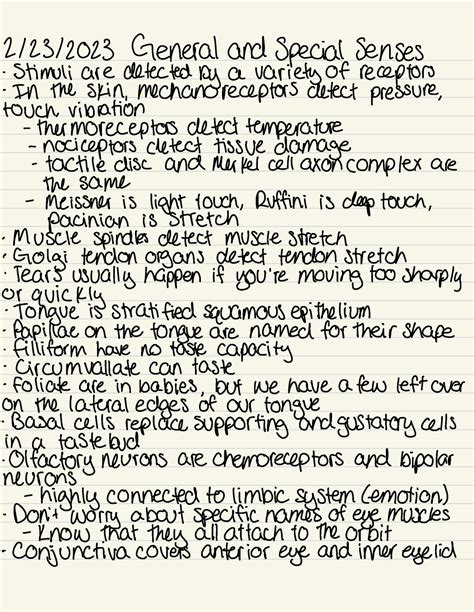 2/23/2023 General and Special Senses
· Stimuli are detected by a variety of receptors
· In the skin, mechanoreceptors detect pressure,
touch vibration
- thermoreceptors detect temperature
- nociceptors detect tissue damage
- tactile disc and Merkel cell axon complex are
the same
- Meissner is light touch, Ruffini is deep touch,
Pacinian is stretch
· Muscle spindles detect muscle stretch
· Golgi tendon organs detect tendon stretch
· Tears usually happen if you're moving too sharply
or quickly
· Tongue is stratified squamous epithelium
· Papillae on the tongue are named for their shape
· Filliform have no taste capacity
· Circumvallate can taste
· Foliate are in babies, but we have a few left over
on the lateral edges of our tongue
· Basal cells replace supporting and gustatory cells
in a taste bud
· Olfactory neurons are chemoreceptors and bipolar
neurons
- highly connected to limbic system (emotion)
· Don't worry about specific names of eye muscles
- Know that they all attach to the orbit
· Conjunctiva covers anterior eye and inner eyelid